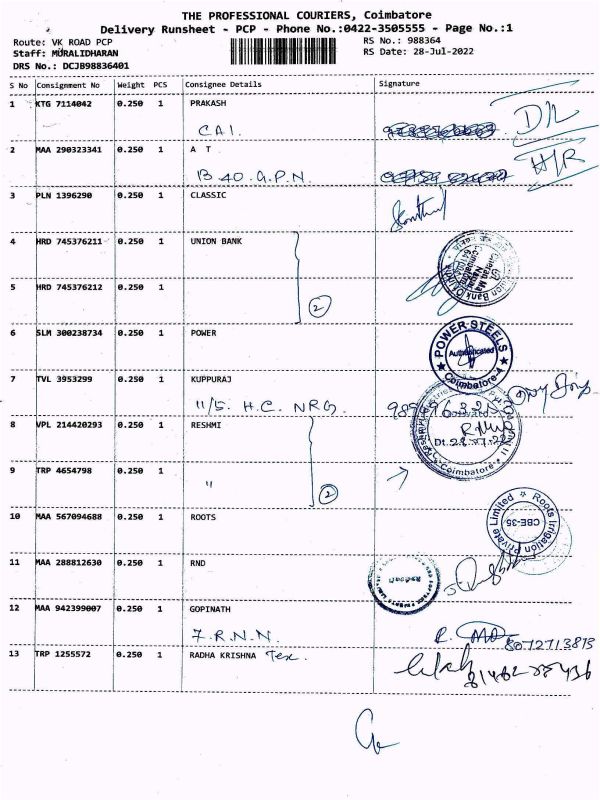 THE PROFESSIONAL COURIERS, Coimbatore
Delivery Runsheet - PCP - Phone No.:0422-3505555 - Page No.:1
Route: VK ROAD PCP RS No.: 988364
Staff: MURALIDHARAN RS Date: 28-Jul-2022
DRS No.: DCJB98836401
S No Consignment No Weight PCS Consignee Details Signature
1 KTG 7114042 0.250 1 PRAKASH
CAI. D/L
2 MAA 290323341 0.250 1 A T
B 40. G.P.N. H/R
3 PLN 1396290 0.250 1 CLASSIC
4 HRD 745376211 0.250 1 UNION BANK
5 HRD 745376212 0.250 1
2
6 SLM 300238734 0.250 1 POWER
POWER STEELS
Authenticated
Coimbatore-4
7 TVL 3953299 0.250 1 KUPPURAJ
11/5. H.C. NRG.
8 VPL 214420293 0.250 1 RESHMI
Dt.28.07.22
9 TRP 4654798 0.250 1 "
2
Coimbatore
10 MAA 567094688 0.250 1 ROOTS
Roots Irrigation Private Limited
CBE-35
11 MAA 288812630 0.250 1 RND
12 MAA 942399007 0.250 1 GOPINATH
7.R.N.N. 8072713873
13 TRP 1255572 0.250 1 RADHA KRISHNA Tex.